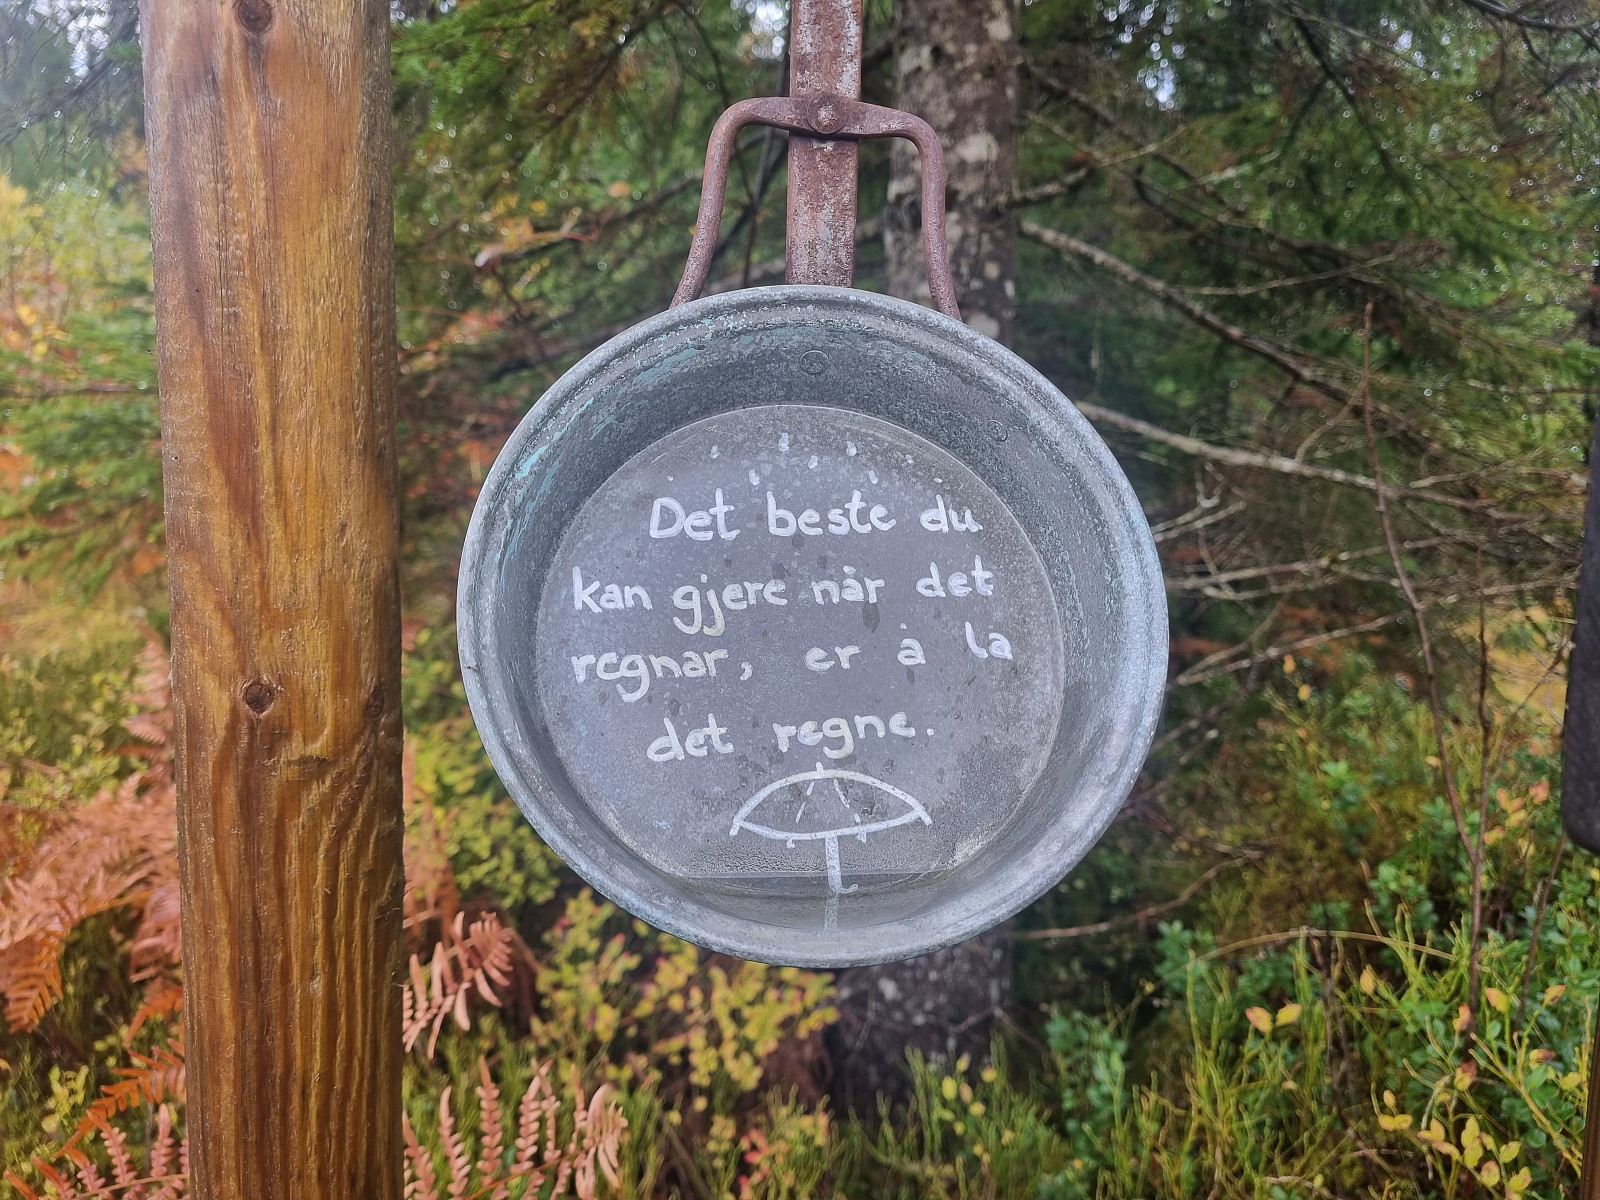 Det beste du
kan gjere når det
regnar, er å la
det regne.